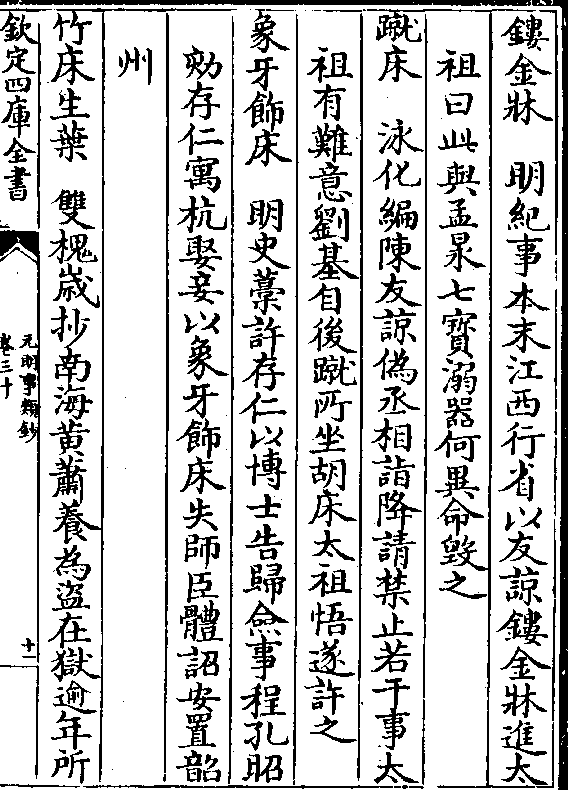 鏤金牀　明紀事本末江西行省以友諒鏤金牀進太
祖曰此與孟昶七寶溺器何異命毀之
蹴床　泳化編陳友諒偽丞相詣降請禁止若干事太
祖有難意劉基自後蹴所坐胡床太祖悟遂許之
象牙飾床　明史藁許存仁以博士告歸僉事程孔昭
劾存仁寓杭娶妾以象牙飾床失師臣體詔安置韶
州
竹床生葉　雙槐歲抄南海黄蕭養為盜在獄逾年所
欽定四庫全書
元明事類鈔
卷三十
十一